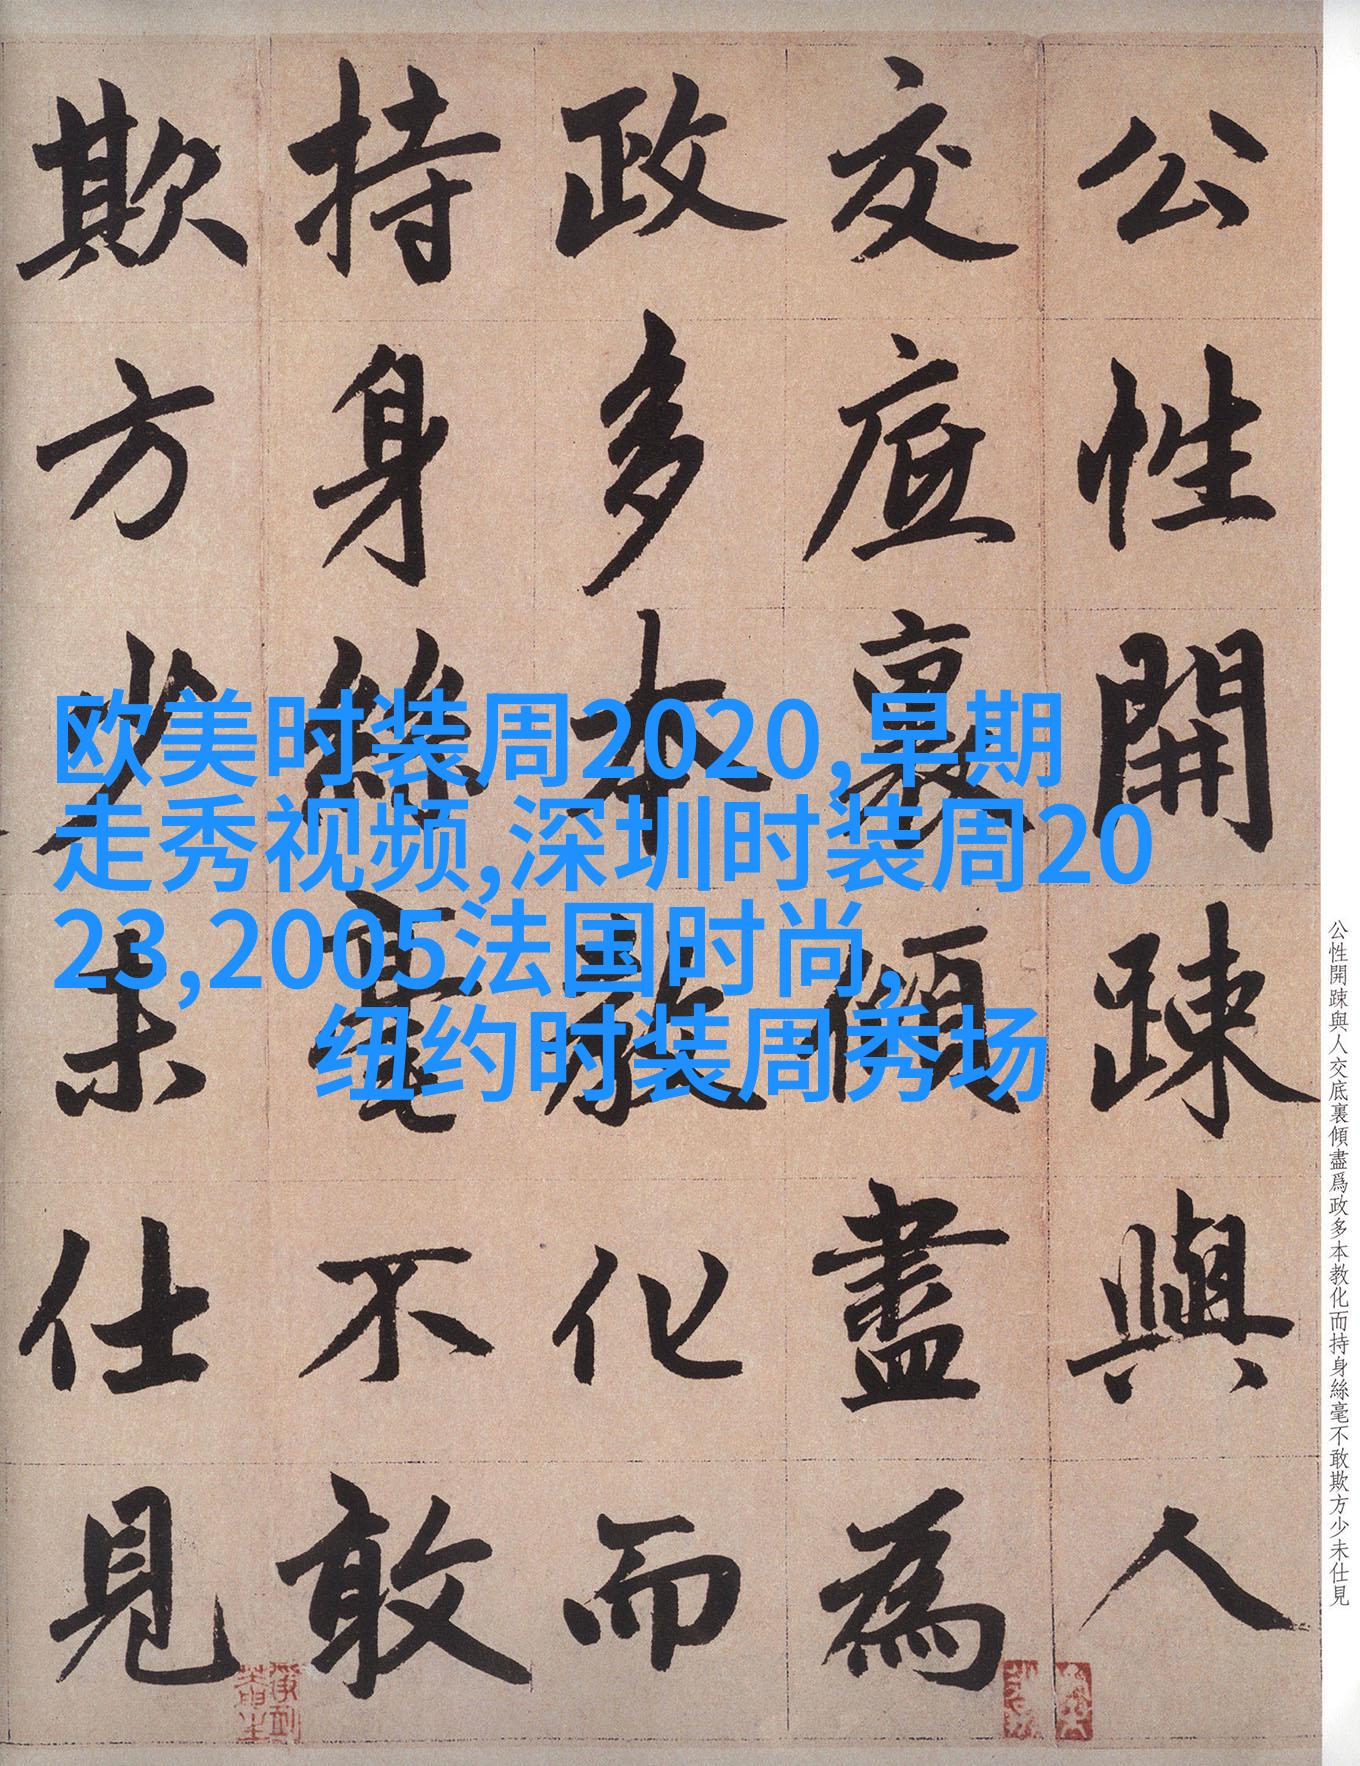 公性開踈與人
交底裏傾盡為
政多本教化而
持身絲毫不敢
欺方少未仕見
欧美时装周2020,早期
走秀视频,深圳时装周20
23,2005法国时尚,
纽约时装周秀场
公性開踈與人交底裏傾盡爲政多本教化而持身絲毫不敢欺方少未仕見